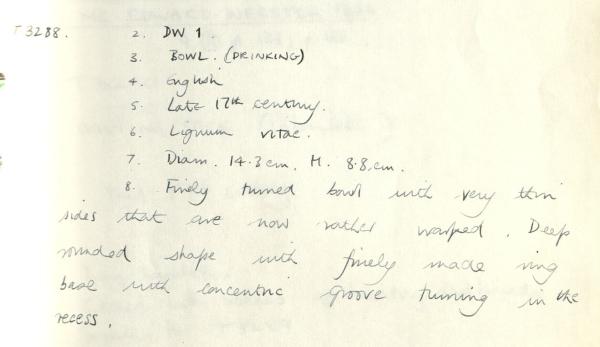 T3288. 2. DW 1
3. BOWL. (DRINKING)
4. English
5. Late 17th century.
6. Lignum vitae.
7. Diam. 14.3cm. H. 8.8cm.
8. Finely turned bowl with very thin
sides that are now rather warped. Deep
rounded shape with finely made ring
base with concentric groove turning in the
recess.